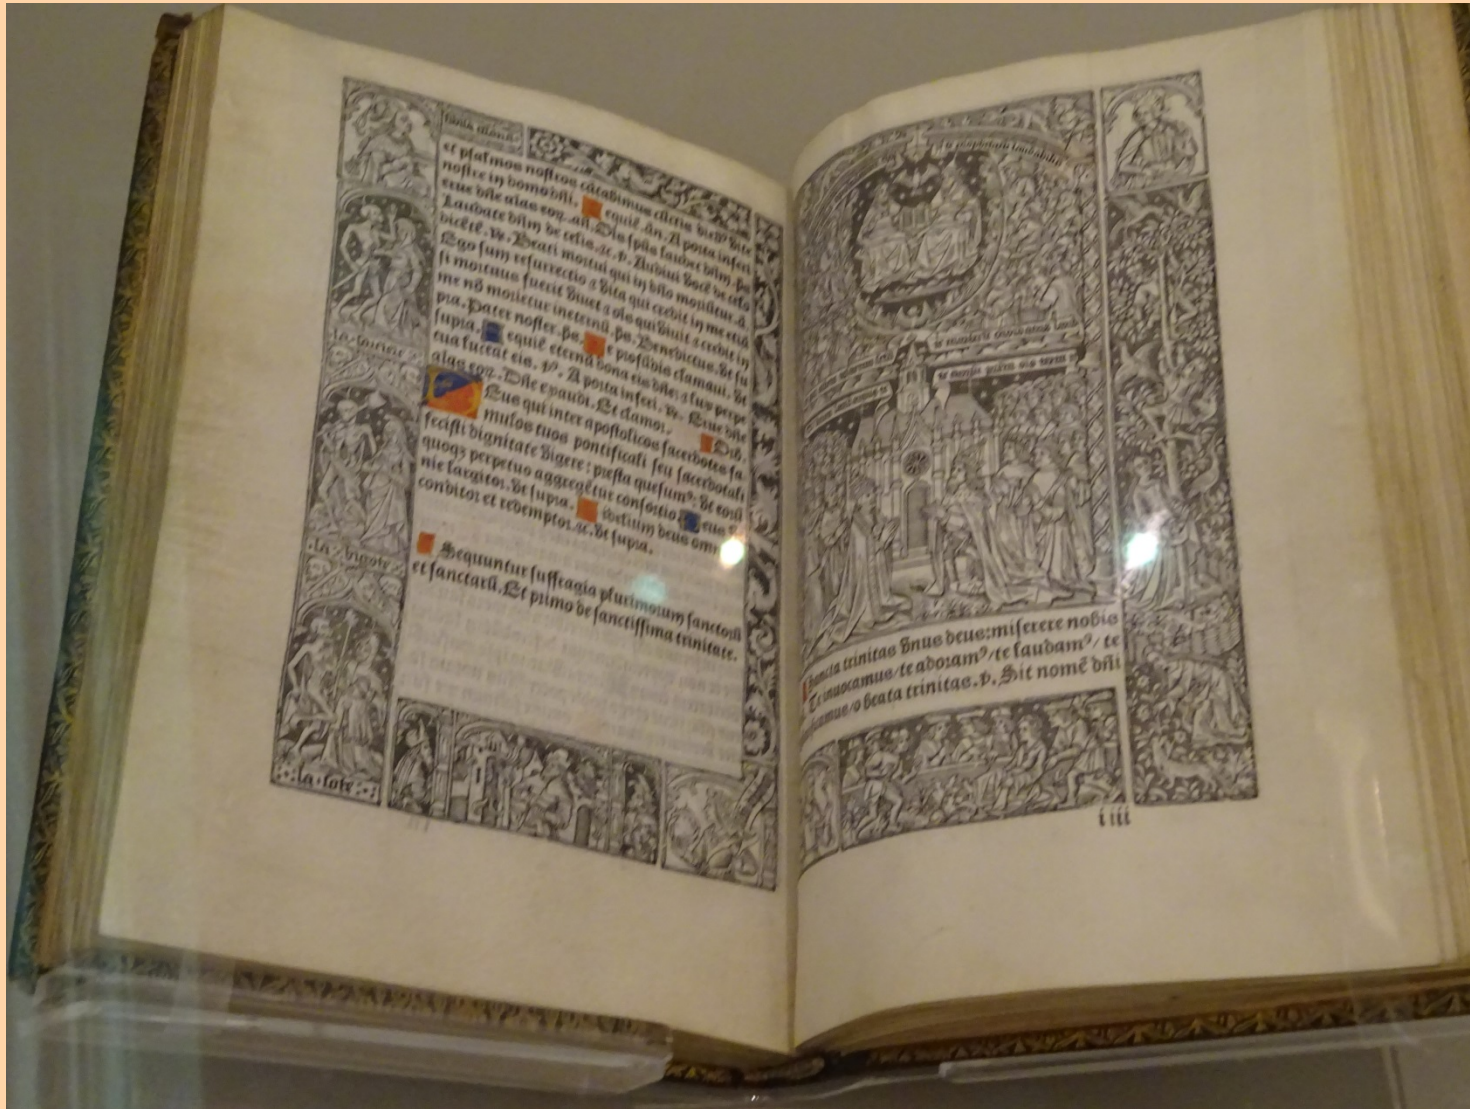 et psalmos nostros cãtabimus cũctis dieb⁹ vite
nostre in domo dñi. equiẽ. añ. A porta inferi
erue dñe aĩas eoꝝ. añ. Oĩs spũs laudet dñm. ps.
Laudate dñm de celis. ⁊c. ℣. Audiui vocẽ de celo
dicẽtẽ. ℟. Beati mortui qui in dño moriũtur. ã.
Ego sum resurrectio ⁊ vita qui credit in me etiã
si mortuus fuerit viuet ⁊ oĩs qui viuit ⁊ credit in
me nõ morietur ineternũ. ps. Benedictus. vt su
pra. Pater noster. ps. e profũdis clamaui. vt
supra. equiẽ eternã dona eis dñe: ⁊ lux perpe
tua luceat eis. ℣. A porta inferi. ℟. Erue dñe
aĩas eoꝝ. Dñe exaudi. Et clamor. Orõ.
Eus qui inter apostolicos sacerdotes fa
mulos tuos pontificali seu sacerdotali
fecisti dignitate vigere: presta quesum⁹: vt eorũ
quoqꝫ perpetuo aggregẽtur consortio. eus
nie largitor. vt supra. idelium deus om
conditor et redemptor. ⁊c. vt supra.
Sequuntur suffragia plurimorum sanctorũ
et sanctarũ. Et primo de sanctissima trinitate.
la bigote
la sote
Sancta trinitas vnus deus: miserere nobis
Te inuocamus/te adoram⁹/te laudam⁹/te
o beata trinitas. ℣. Sit nomẽ dñi
i iii